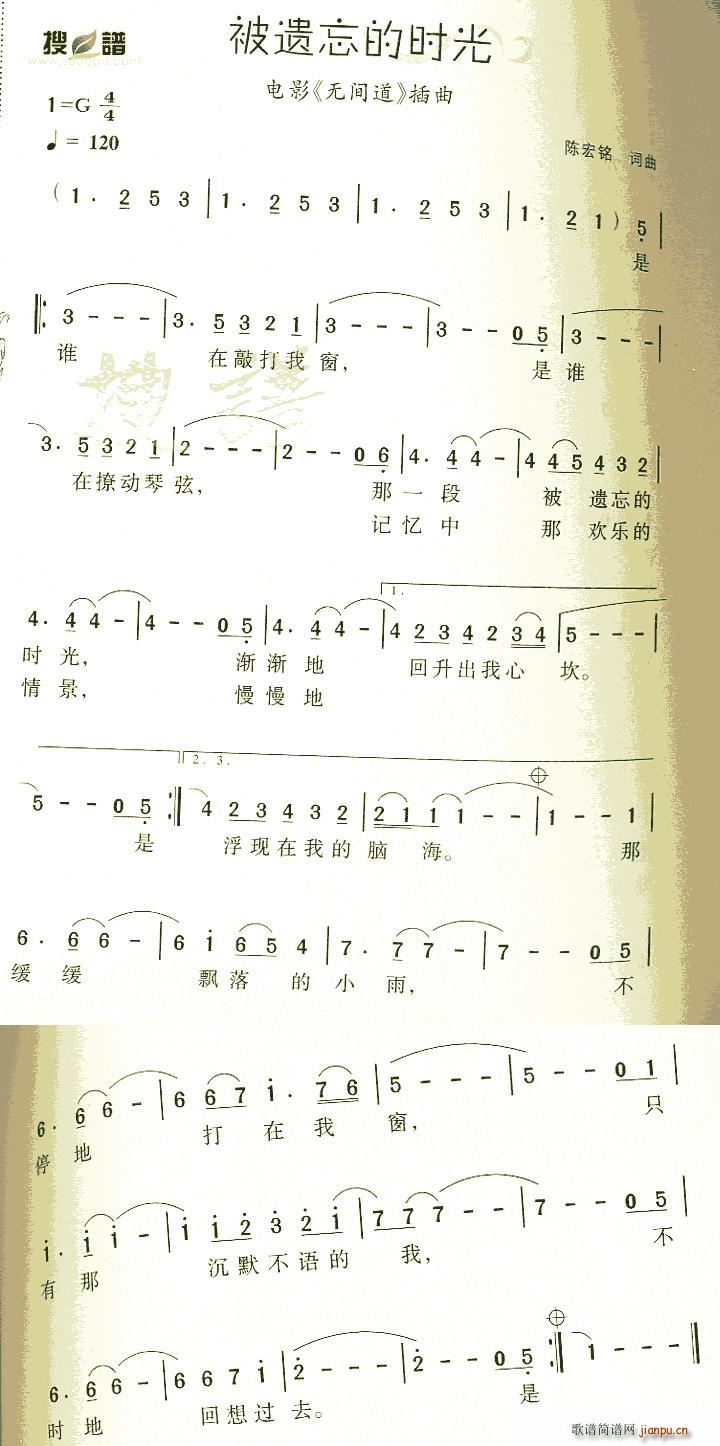 搜谱
www.sooopu.com
被遗忘的时光
电影《无间道》插曲
1=G 4/4
♩= 120
陈宏铭 词曲
( 1 . 2 5 3 | 1 . 2 5 3 | 1 . 2 5 3 | 1 . 2 1 ) 5 |
是
3 - - - | 3 . 5 3 2 1 | 3 - - - | 3 - - 0 5 | 3 - - - |
谁 在敲打我窗， 是谁
3 . 5 3 2 1 | 2 - - - | 2 - - 0 6 | 4 . 4 4 - | 4 4 5 4 3 2 |
在撩动琴弦， 那一段 被遗忘的
记忆中 那欢乐的
1.
4 . 4 4 - | 4 - - 0 5 | 4 . 4 4 - | 4 2 3 4 2 3 4 | 5 - - - |
时光， 渐渐地 回升出我心坎。
情景， 慢慢地
2. 3.
5 - - 0 5 :| 4 2 3 4 3 2 | 2 1 1 1 - - | 1 - - 1 |
是 浮现在我的脑海。 那
6 . 6 6 - | 6 i 6 5 4 | 7 . 7 7 - | 7 - - 0 5 |
缓缓 飘落的小雨， 不
6 . 6 6 - | 6 6 7 i . 7 6 | 5 - - - | 5 - - 0 1 |
停地 打在我窗， 只
i . i i - | i i 2 3 2 i | 7 7 7 - - | 7 - - 0 5 |
有那 沉默不语的我， 不
6 . 6 6 - | 6 6 7 i | 2 - - - | 2 - - 0 5 :| 1 - - - ||
时地 回想过去。 是
歌谱简谱网 jianpu.cn